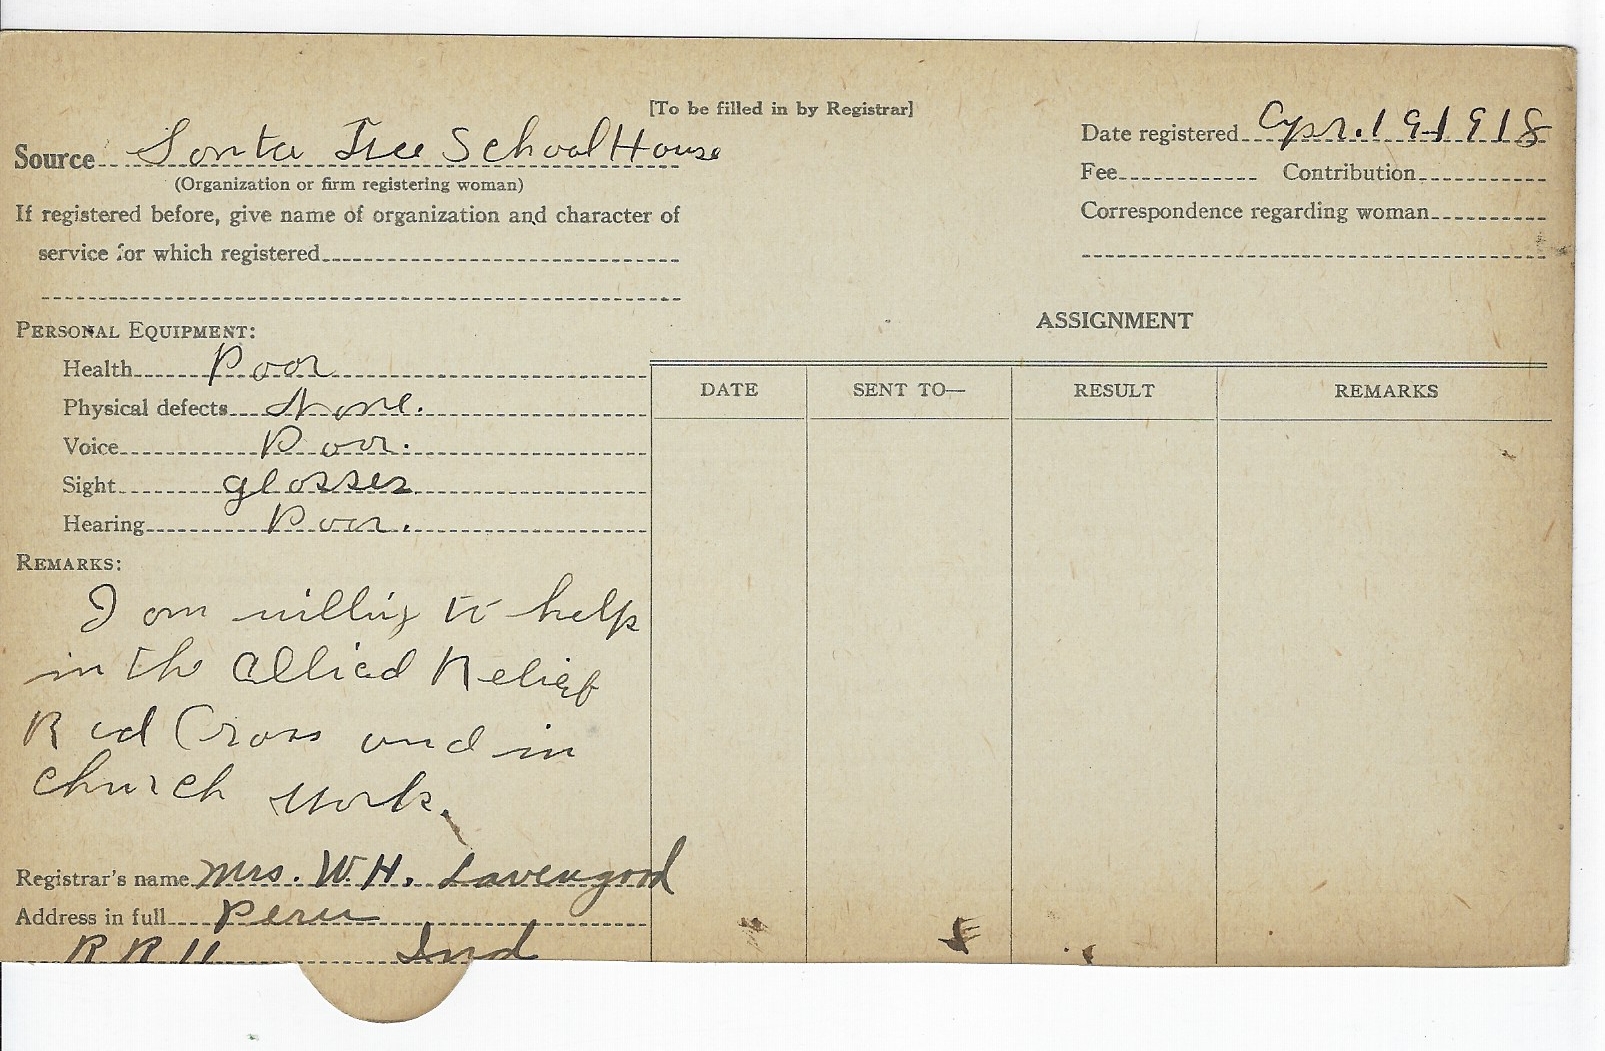 [To be filled in by Registrar]
Source Santa Fee School House
(Organization or firm registering woman)
If registered before, give name of organization and character of
service for which registered
Date registered Apr. 19-1918
Fee Contribution
Correspondence regarding woman
PERSONAL EQUIPMENT:
Health Poor
Physical defects None.
Voice Poor.
Sight glasses
Hearing Poor.
REMARKS:
I am willing to help
in the Allied Relief
Red Cross and in
church work.
Registrar's name Mrs. W. H. Lavengood
Address in full Peru
R R 11 Ind
ASSIGNMENT
DATE SENT TO— RESULT REMARKS